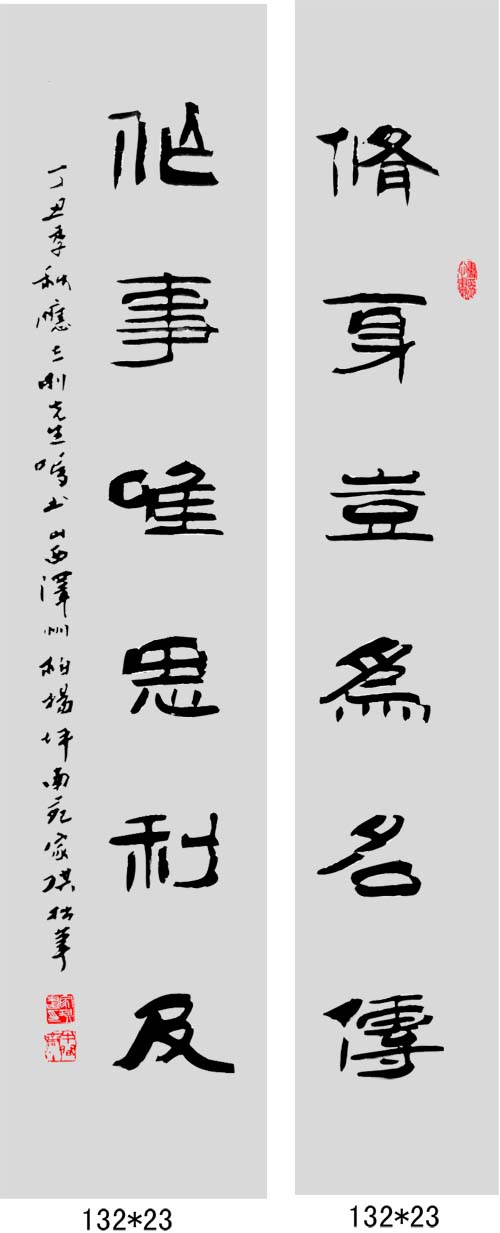 脩身豈爲名傳
作事唯思利及
丁丑季秋應刚先生嘱书山西澤州柏楊坪南苑家琪拙筆
132*23
132*23